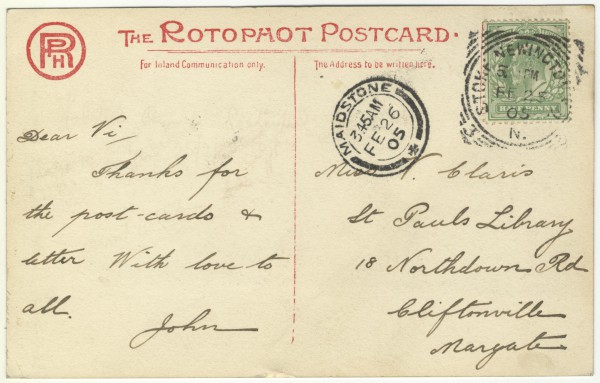 RPPH
THE ROTOPHOT POSTCARD.
For Inland Communication only.
The Address to be written here.
STOKE NEWINGTON
FE 25
05
N.
HALFPENNY
MAIDSTONE
345AM
FE 26
05
Dear Vi,
Thanks for
the post-cards &
letter With love to
all.
John
Miss V. Claris
St Pauls Library
18 Northdown Rd
Cliftonville
Margate